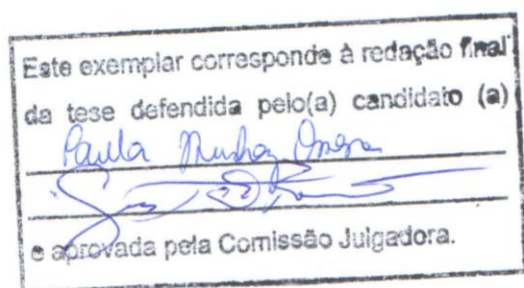 Este exemplar corresponde à redação final
da tese defendida pelo(a) candidato (a)
Paula
e aprovada pela Comissão Julgadora.